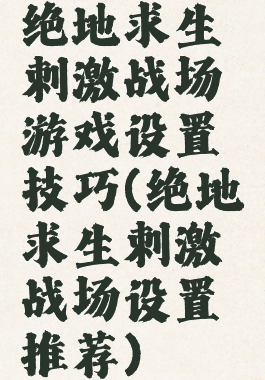 绝地求生
刺激战场
游戏设置
技巧(绝地
求生刺激
战场设置
推荐)